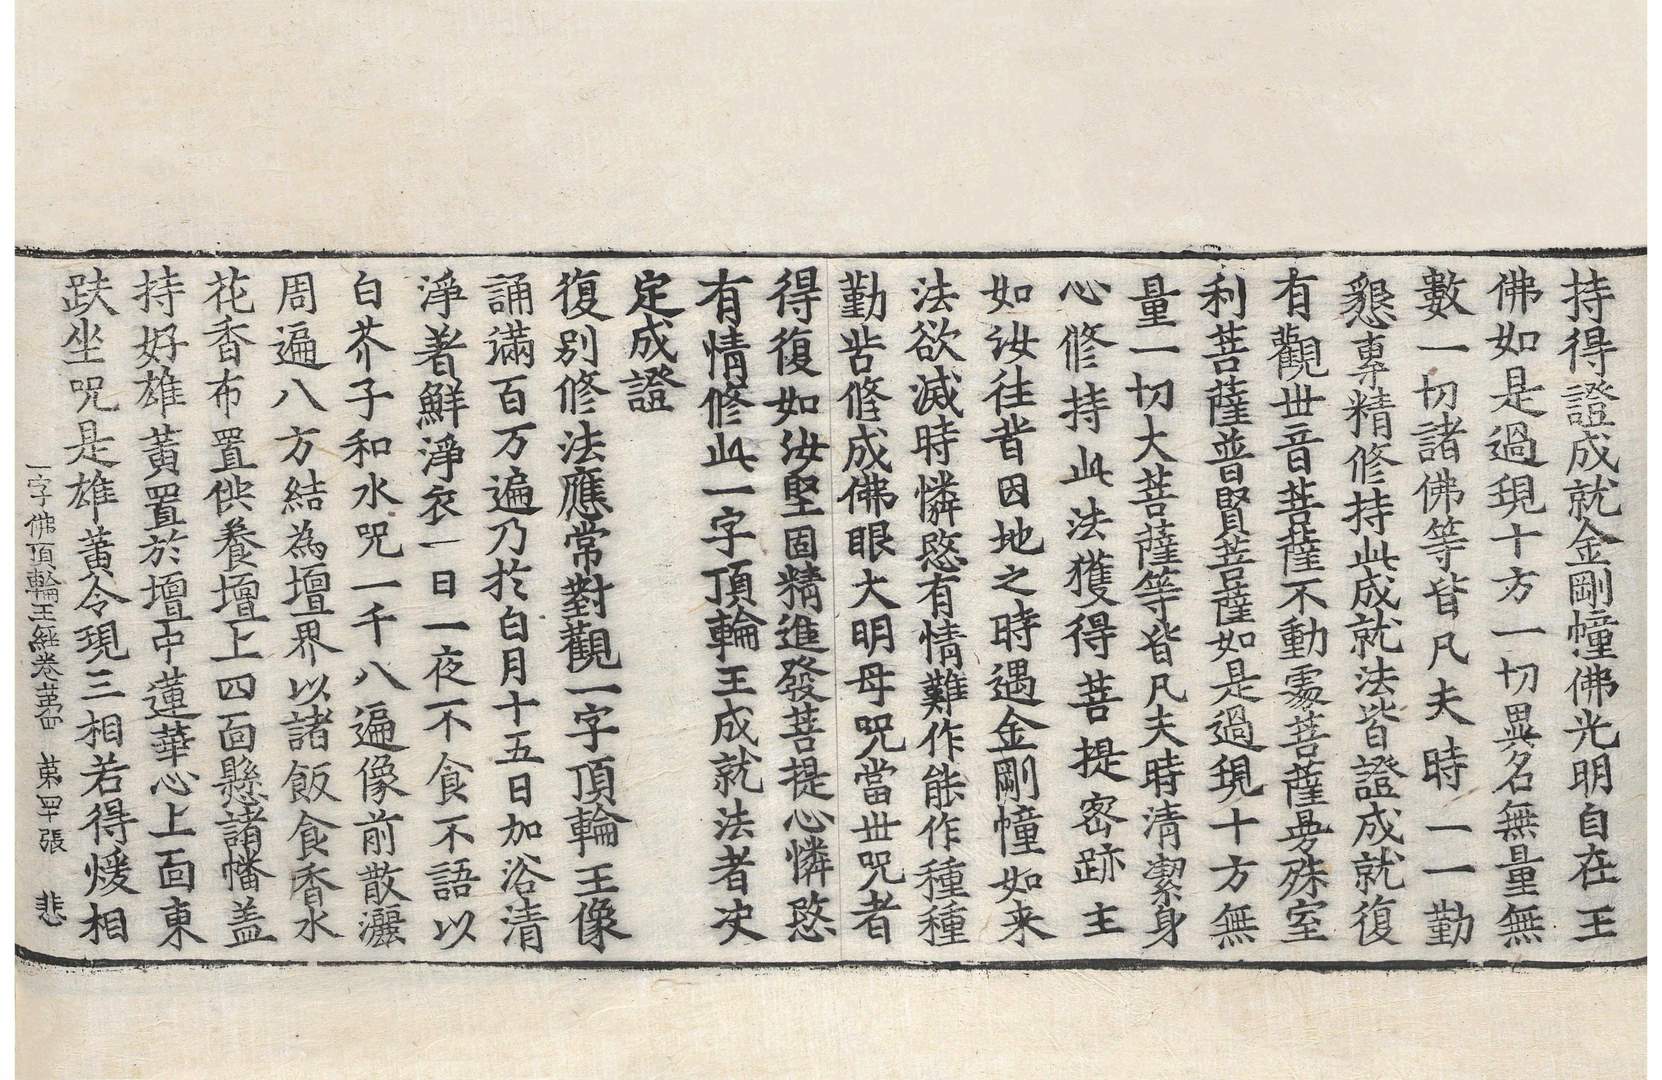 持得證成就金剛幢佛光明自在王
佛如是過現十方一切異名無量無
數一切諸佛等皆凡夫時一一勤
懇專精修持此成就法皆證成就復
有觀世音菩薩不動處菩薩曼殊室
利菩薩普賢菩薩如是過現十方無
量一切大菩薩等皆凡夫時清潔身
心修持此法獲得菩提密跡主
如汝往昔因地之時遇金剛幢如来
法欲滅時憐愍有情難作能作種種
勤苦修成佛眼大明母呪當世呪者
得復如汝堅固精進發菩提心憐愍
有情修此一字頂輪王成就法者决
定成證
復別修法應常對觀一字頂輪王像
誦滿百万遍乃於白月十五日加浴清
淨著鮮淨衣一日一夜不食不語以
白芥子和水呪一千八遍像前散灑
周遍八方結為壇界以諸飯食香水
花香布置供養壇上四面懸諸幡盖
持好雄黃置於壇中蓮華心上面東
趺坐呪是雄黃令現三相若得煖相
一字佛頂輪王經卷第四 第四十張 悲